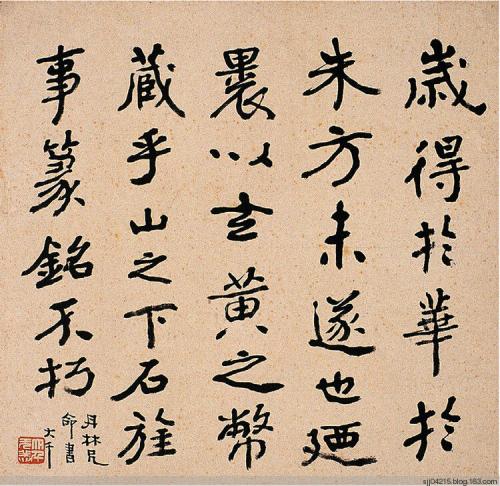 歲得於華於
朱方未遂也廼
褁以玄黃之幣
藏乎山之下石旌
事篆銘不朽
丹林兄
命書
大千
sjj04215.blog.163.com